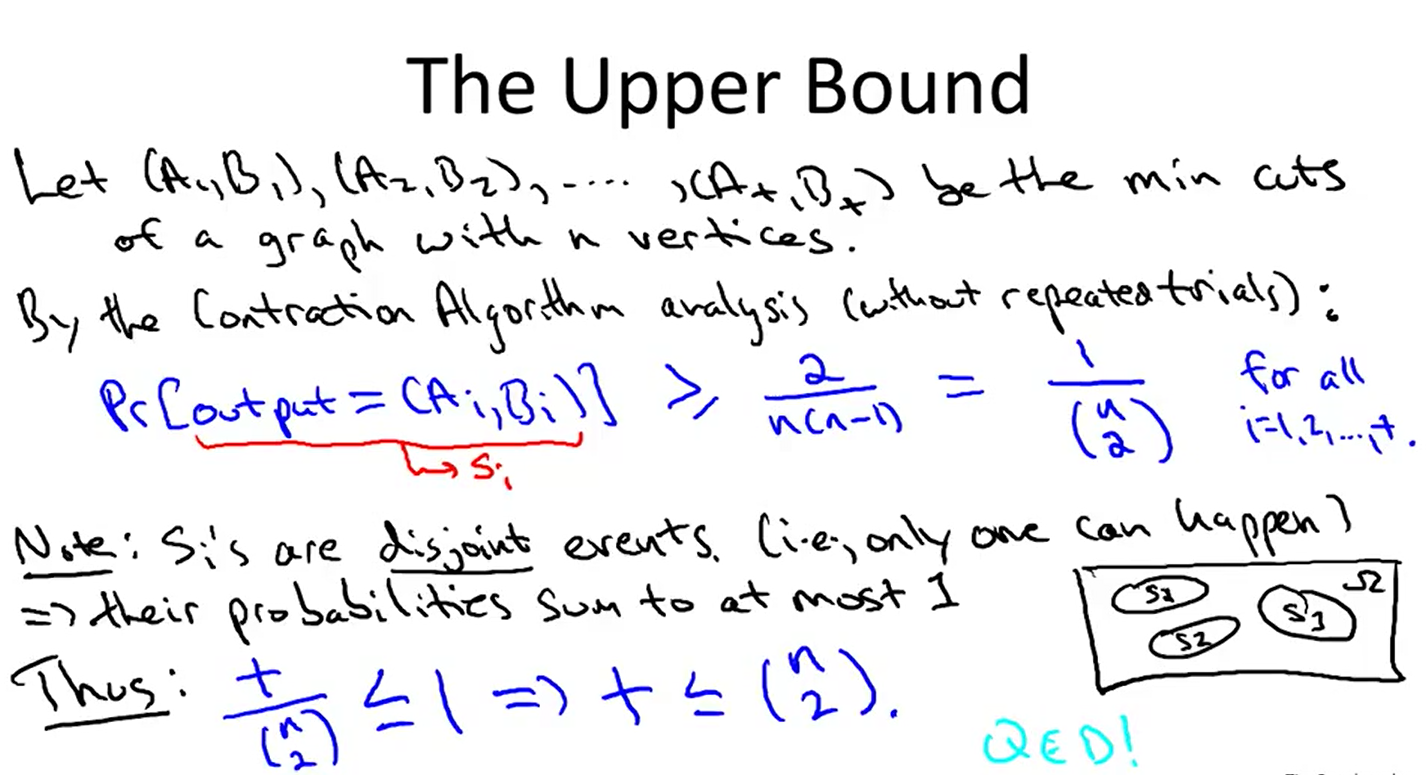 The Upper Bound
Let (A₁,B₁), (A₂,B₂), ---- ,(A_t,B_t) be the min cuts
of a graph with n vertices.
By the Contraction Algorithm analysis (without repeated trials):
Pr[output = (Aᵢ,Bᵢ)] ≥ 2/n(n-1) = 1/(n 2) for all
i=1,2,...,t.
↳ Sᵢ
Note: Sᵢ's are disjoint events. (i.e., only one can happen)
=> their probabilities sum to at most 1
S1 S2 S3 Ω
Thus: t/(n 2) ≤ 1 => t ≤ (n 2).
QED!